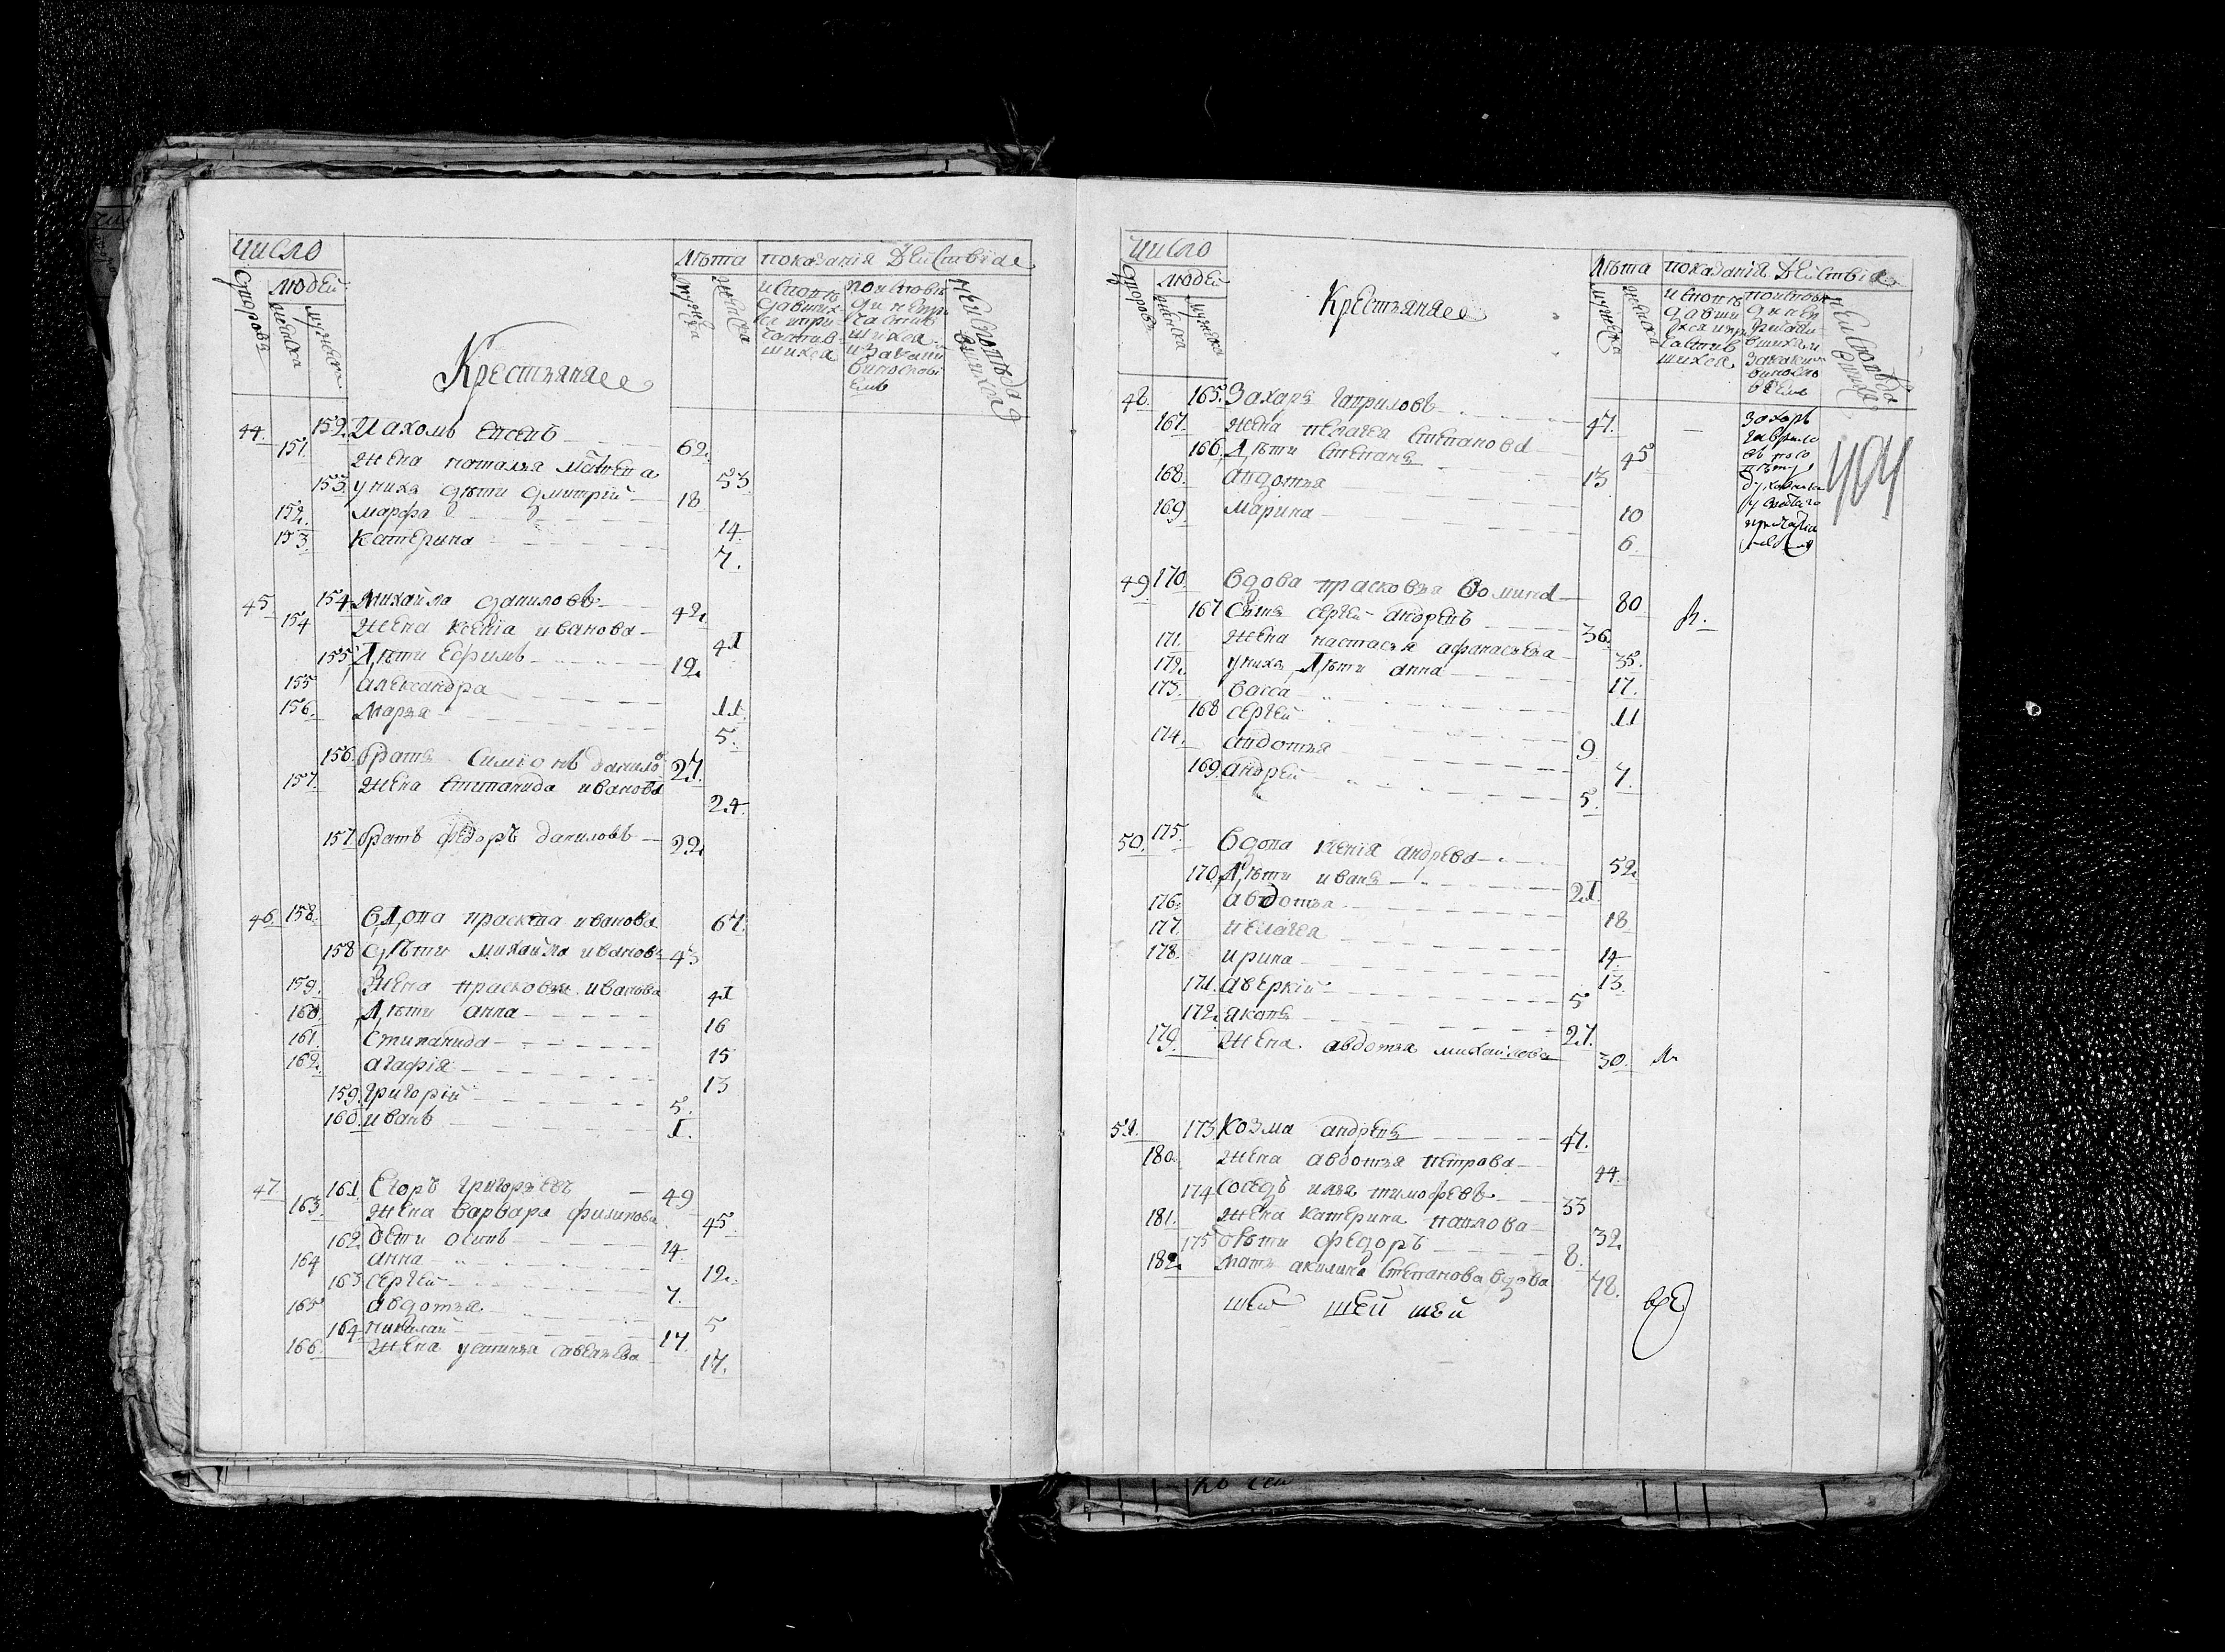 число
дворовъ
людей
женска
мужеска
Крестьянае
Лѣта
мужеска
женска
показанія Действіяе
исповѣ
давших
ся и при
частив
шихся
по исповѣ
ди не при
частив
шихся
и за каки
ми
Неисповѣда
вшихся
44. 152. Пахомъ Евсевъ 62.
151. жена наталья Матвева 53
153. у нихъ дѣти дмитрій 18
152. марфа 14
153. катерина 7.
45. 154 Михайла даниловъ 42.
154 жена ксенія иванова 41
155 Дѣти Ефимъ 12.
155 александра 11.
156. марья 5.
156. братъ Симіонъ данило 27.
157. жена стипанида иванова 24.
157 братъ федоръ даниловъ 22.
46. 158. вдова праскева иванова 67.
158 дѣти михайла ивановъ 43
159. Жена прасковья иванова 41
160. Дѣти анна 16
161. Стипанида 15
162. агафія 13
159. григорій 5.
160. иванъ 1.
47. 161. Егоръ григорьевъ 49
163. жена варвара филипова 45.
162. дети осипъ 14.
164 анна 12.
163. сергей 7.
165 авдотья 5
164 николай 17.
166. жена устинья савельева 17.
число
дворовъ
людей
женска
мужеска
Крестьянае
Лѣта
мужеска
женска
показанія Действіяе
исповѣ
давши
хся и при
частив
шихся
48. 165. Захаръ гавриловъ 47.
167. жена пелагея степанова 45
166. Дѣти степанъ 13
168. авдотья 10
169. марина 6.
Захаръ
гаврило
въ
404
49. 170. вдова прасковья Фомина 80
167 Сынъ сергей андревъ 36.
171. жена настасья афанасьева 35.
172. у нихъ Дѣти анна 17.
173. васса 11
168 сергей 9.
174. авдотья 7.
169. андрей 5.
50. 175. вдова ксенія андрева 52.
170. Дѣти иванъ 21.
176. авдотья 18
177. пелагея 14.
178. ирина 13.
171. аверкій 5
172. яковъ 27.
179. жена авдотья михайлова 30.
51. 173 козма андревъ 47.
180. жена авдотья петрова 44.
174 соседъ илья тимофеевъ 33
181. жена катерина павлова 32.
175 дѣти федоръ 8.
182. мать акилина степанова вдова 78.
шей шей шей